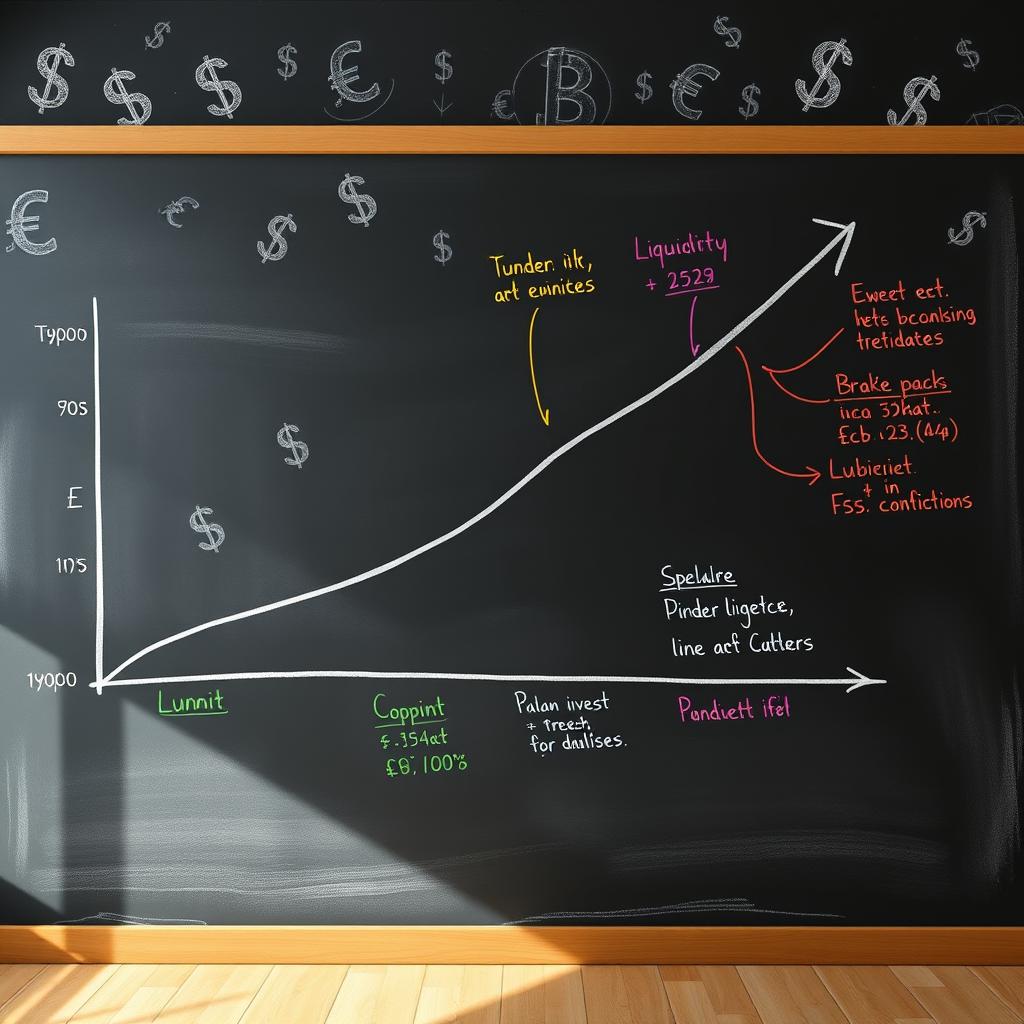 Tunder. iik,
art ewinites
Liquidirty
+ 2529
Eweet ect.
hets bconksing
tretidates
Typoo
90S
Brake packs
ico 33hat..
£cb.123.(A4p)
E
Lubieriet.
+ in
FSS. confictions
1175
Spelalre
Pinder liigetce,
line acf Cutters
1yopo
Lunnit
Coppint
£.354at
£8, 100%
Palan ivest
+ Treest.
for dnalises.
Pandiett ifel